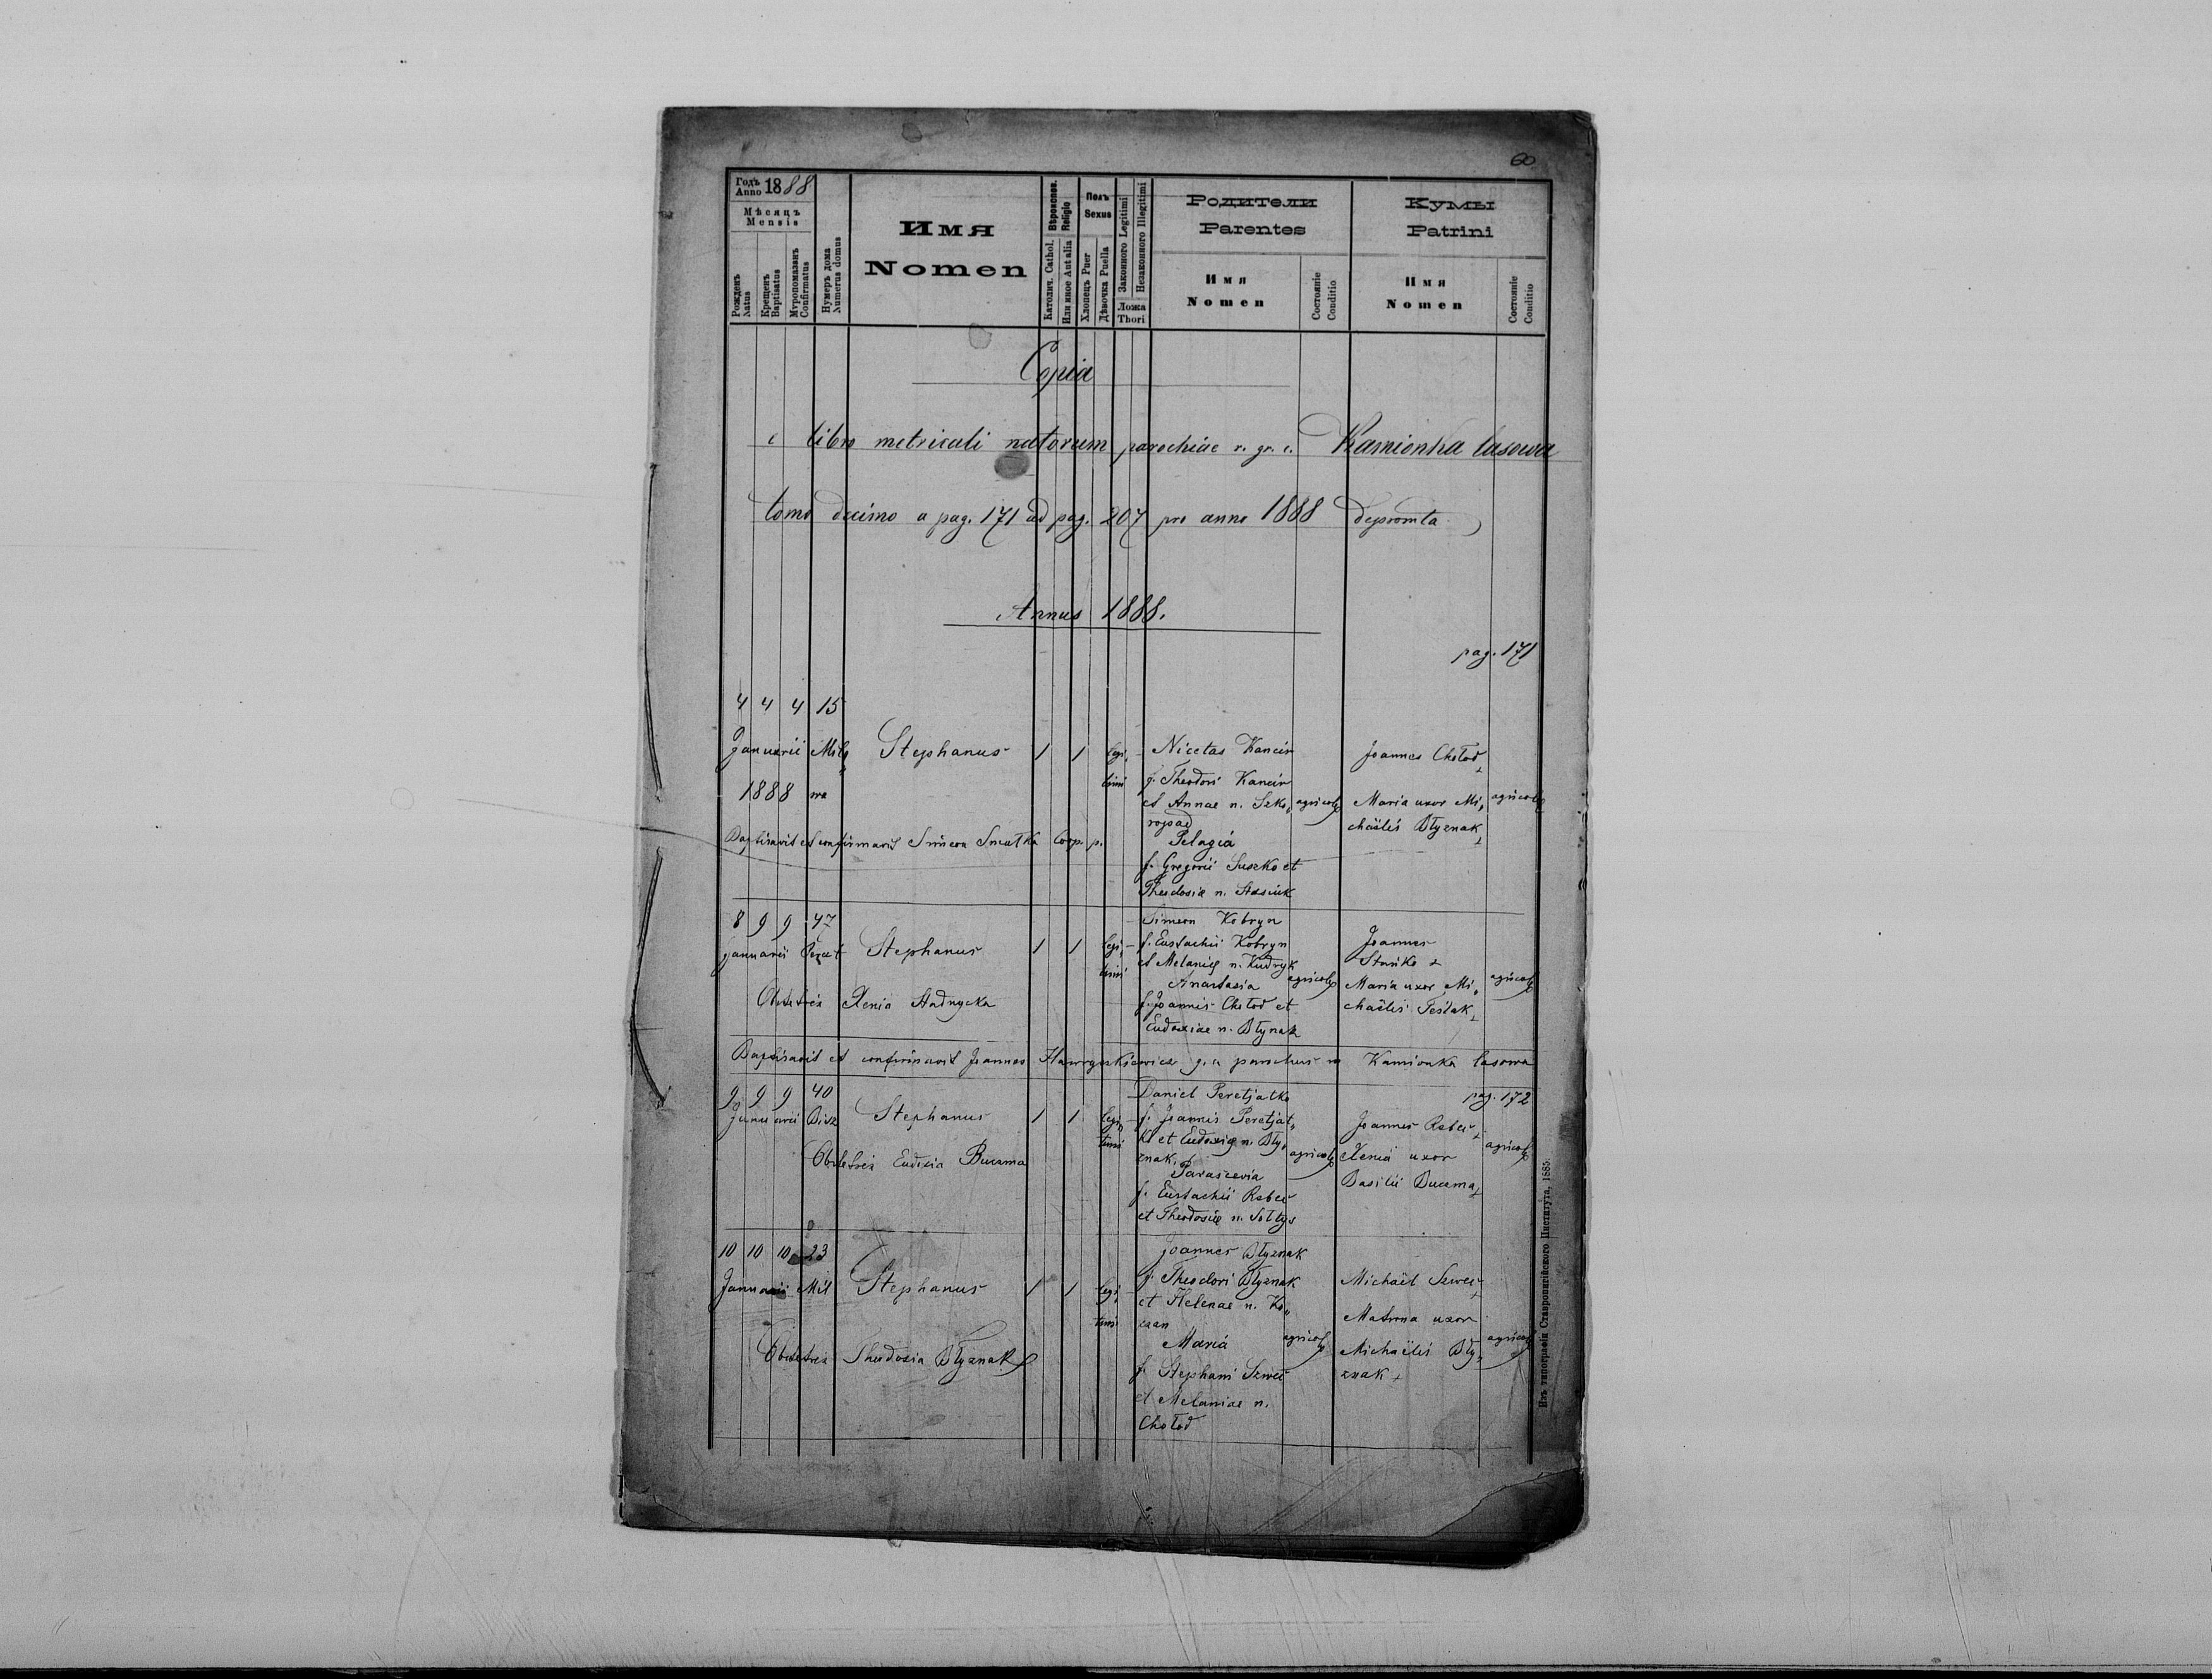 60
Годъ
Anno 1888
Мѣсяцъ
Mensis
Рожденъ
Natus
Крещенъ
Baptisatus
Мѵропомазанъ
Confirmatus
Нумеръ дома
Numerus domus
Имя
Nomen
Вѣроиспов.
Religio
Католич. Cathol.
Или иное Aut alia
Полъ
Sexus
Хлопецъ Puer
Дѣвочка Puella
Законного Legitimi
Незаконного Illegitimi
Ложа
Thori
Родители
Parentes
Имя
Nomen
Состоянie
Conditio
Кумы
Patrini
Имя
Nomen
Состоянie
Conditio
Copia
e libro metricali natorum parochiae r. gr. c. Kamionka lasowa
tomo decimo a pag. 171 ad pag. 207 pro anno 1888 depromta
Annus 1888.
pag. 171
4 4 4 15
Januarii
1888
Stephanus 1 1 legi„
timi
Nicetas Kancir
f. Theodori Kancir
et Annae n. Szko„
ropad
Pelagia
f. Gregorii Suszko et
Theodosia n. Stasiuk
agricolae
Joannes Chołod
Maria uxor Mi„
chaëlis Błyznak
agricolae
Baptisavit et confirmavit Simeon Smatka Coop. p.
8 9 9 47
Januarii
Stephanus 1 1 legi„
timi
Simeon Kobryn
f. Eustachii Kobryn
et Melaniae n. Kudryk
Anastasia
f. Joannis Chołod et
Eudoxiae n. Błynak
agricolae
Joannes
Stańko
Maria uxor Mi„
chaëlis Teslak
agricolae
Obstetrix Xenia Stadnycka
Baptisavit et confirmavit Joannes Hawryszkiewicz g. c. parochus in Kamionka lasowa
pag. 172
9 9 9 40
Januarii Bisz
Stephanus 1 1 legi„
timi
Daniel Peretjatko
f. Joannis Peretjat„
ko et Eudoxiae n. Bły„
znak,
Parascevia
f. Eustachii Rebeć
et Theodosiae n. Sołtys
agricolae
Joannes Rebeć
Xenia uxor
Basilii Bucama
agricolae
Obstetrix Eudoxia Bucama
10 10 10 23
Januarii Mil
Stephanus 1 1 legi„
timi
Joannes Błyznak
f. Theodori Błyznak
et Helenae n. Ko„
zaan
Maria
f. Stephani Szweć
et Melaniae n.
Chołod
agricolae
Michaël Szweć
Matrona uxor
Michaëlis Bły„
znak
agricolae
Obstetrix Theodosia Błyznak
Изъ типографіи Ставропигійского Института, 1885.